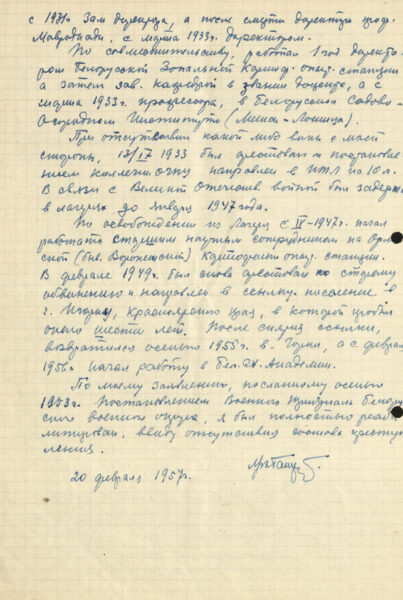 с 1931г. Зам директора, а после смерти директора проф.
Мавродиади, с марта 1933г. директором.
По совместительству, работал 1 год директо-
ром Белорусской Зональной Картоф. опыт. станции
а затем зав. кафедрой в звании доцента, а с
марта 1933г. профессора, в Белорусском Садово-
Огородном Институте (Минск-Лошица).
При отсутствии какой либо вины с моей
стороны, 1933 был арестован и постановле-
нием коллегии ОГПУ направлен в ИТЛ на 10 л.
В связи с Великой Отечеств. войной был задержан
в лагерях до января 1947 года.
По освобождении из лагеря с 1947г. начал
работать старшим научным сотрудником на
ской (быв. Воронежской) Картофельн. опыт. станции.
В феврале 1949г. был снова арестован по старому
обвинению и направлен в ссылку-поселение в
г. Игарку, красноярского края, в которой пробыл
около шести лет. После снятия ссылки,
возвратился осенью 1955г. в г. Горки, а с февраля
1956г. начал работу в Бел. СХ. Академии.
По моему заявлению, посланному осенью
1953г. Постановлением Военного Трибунала Белорус-
ского военного округа, я был полностью реаби-
литирован, ввиду отсутствия состава преступ-
ления.
20 февраля 1957г.